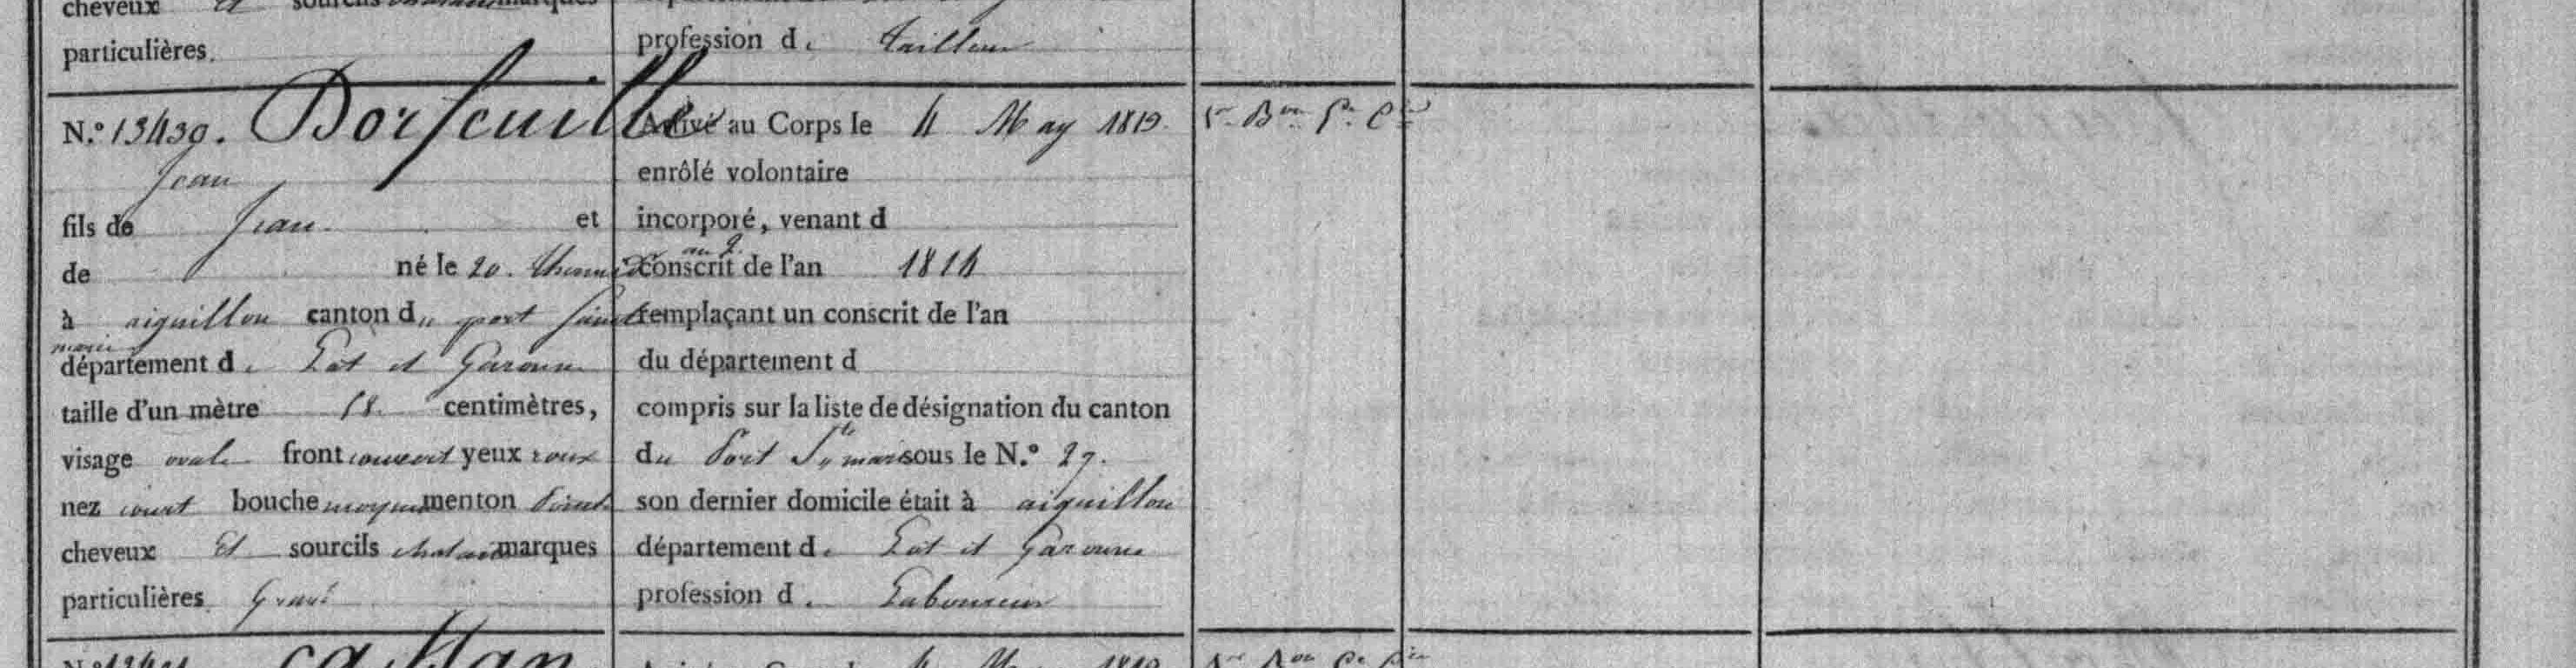 cheveux et sourcils marques
particulières.
profession de tailleur
N.° 13439. Dorfeuille
Jean
fils de Jean et
de né le 20. thermidor
an 2.
à aiguillon canton du port Sainte
marie
département de Lot et Garonne
taille d'un mètre 58. centimètres,
visage ovale front couvert yeux roux
nez court bouche moyenne menton pointu
cheveux Et sourcils chatains marques
particulières Gravé
Arrivé au Corps le 4 May 1813.
enrôlé volontaire
incorporé, venant d
conscrit de l'an 1814
remplaçant un conscrit de l'an
du département d
compris sur la liste de désignation du canton
du Port Ste marie sous le N.° 27.
son dernier domicile était à aiguillon
département de Lot et Garonne
profession de Laboureur
Bon Cie